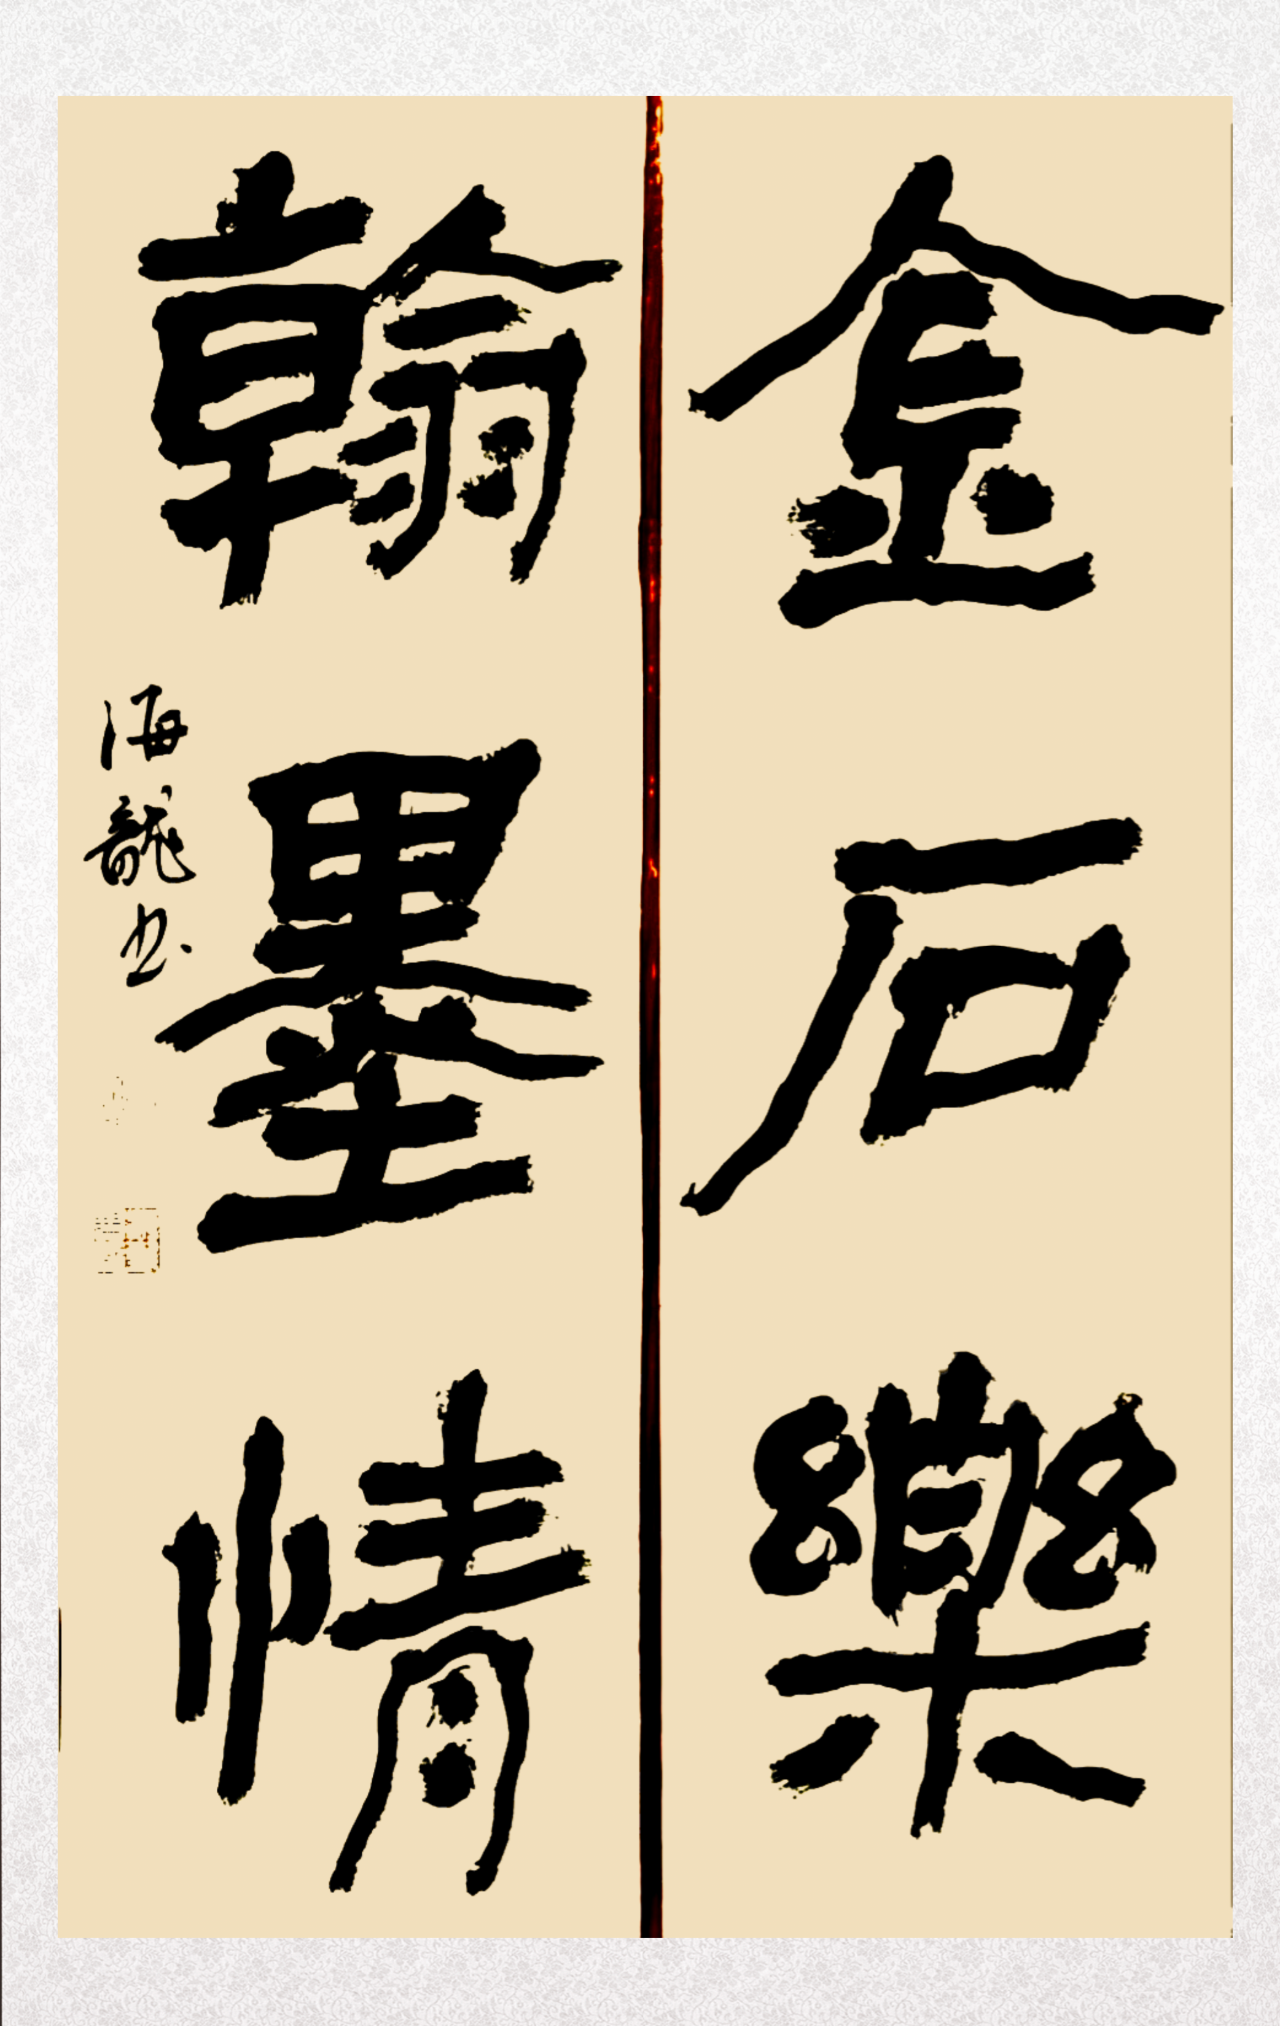 金石樂
翰墨情
海龍书